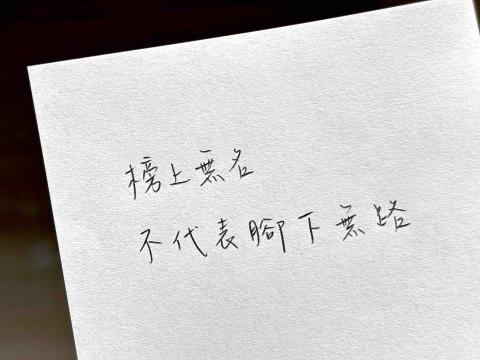 榜上無名
不代表腳下無路